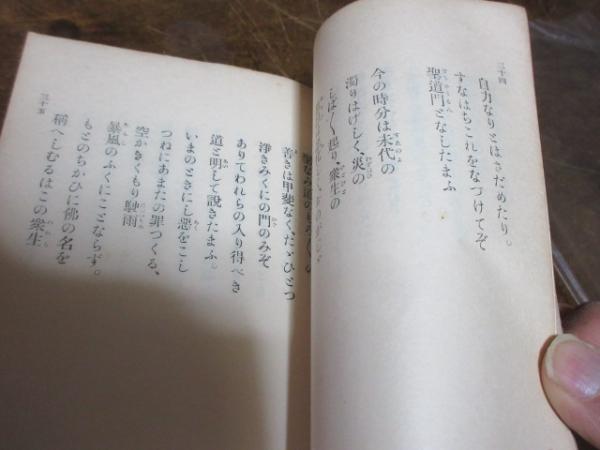 三十四
自力なりとはさだめたり。
すなはちこれをなづけてぞ
聖道門となしたまふ
今の時分は末代の
濁りはげしく、災の
しば〳〵起り、衆生の
善きは甲斐なく、たゞひとつ
淨きみくにの門のみぞ
ありてわれらの入り得べき
道と明して說きたまふ。
いまのときにし惡をこし
つねにあまたの罪つくる、
空かきくもり驟雨
暴風のふくにことならず。
もとのちかひに佛の名を
稱へしむるはこの衆生
三十五